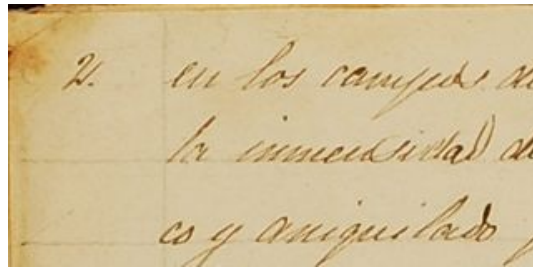 2. en los campos de
la inmensidad de
co y aniquilado